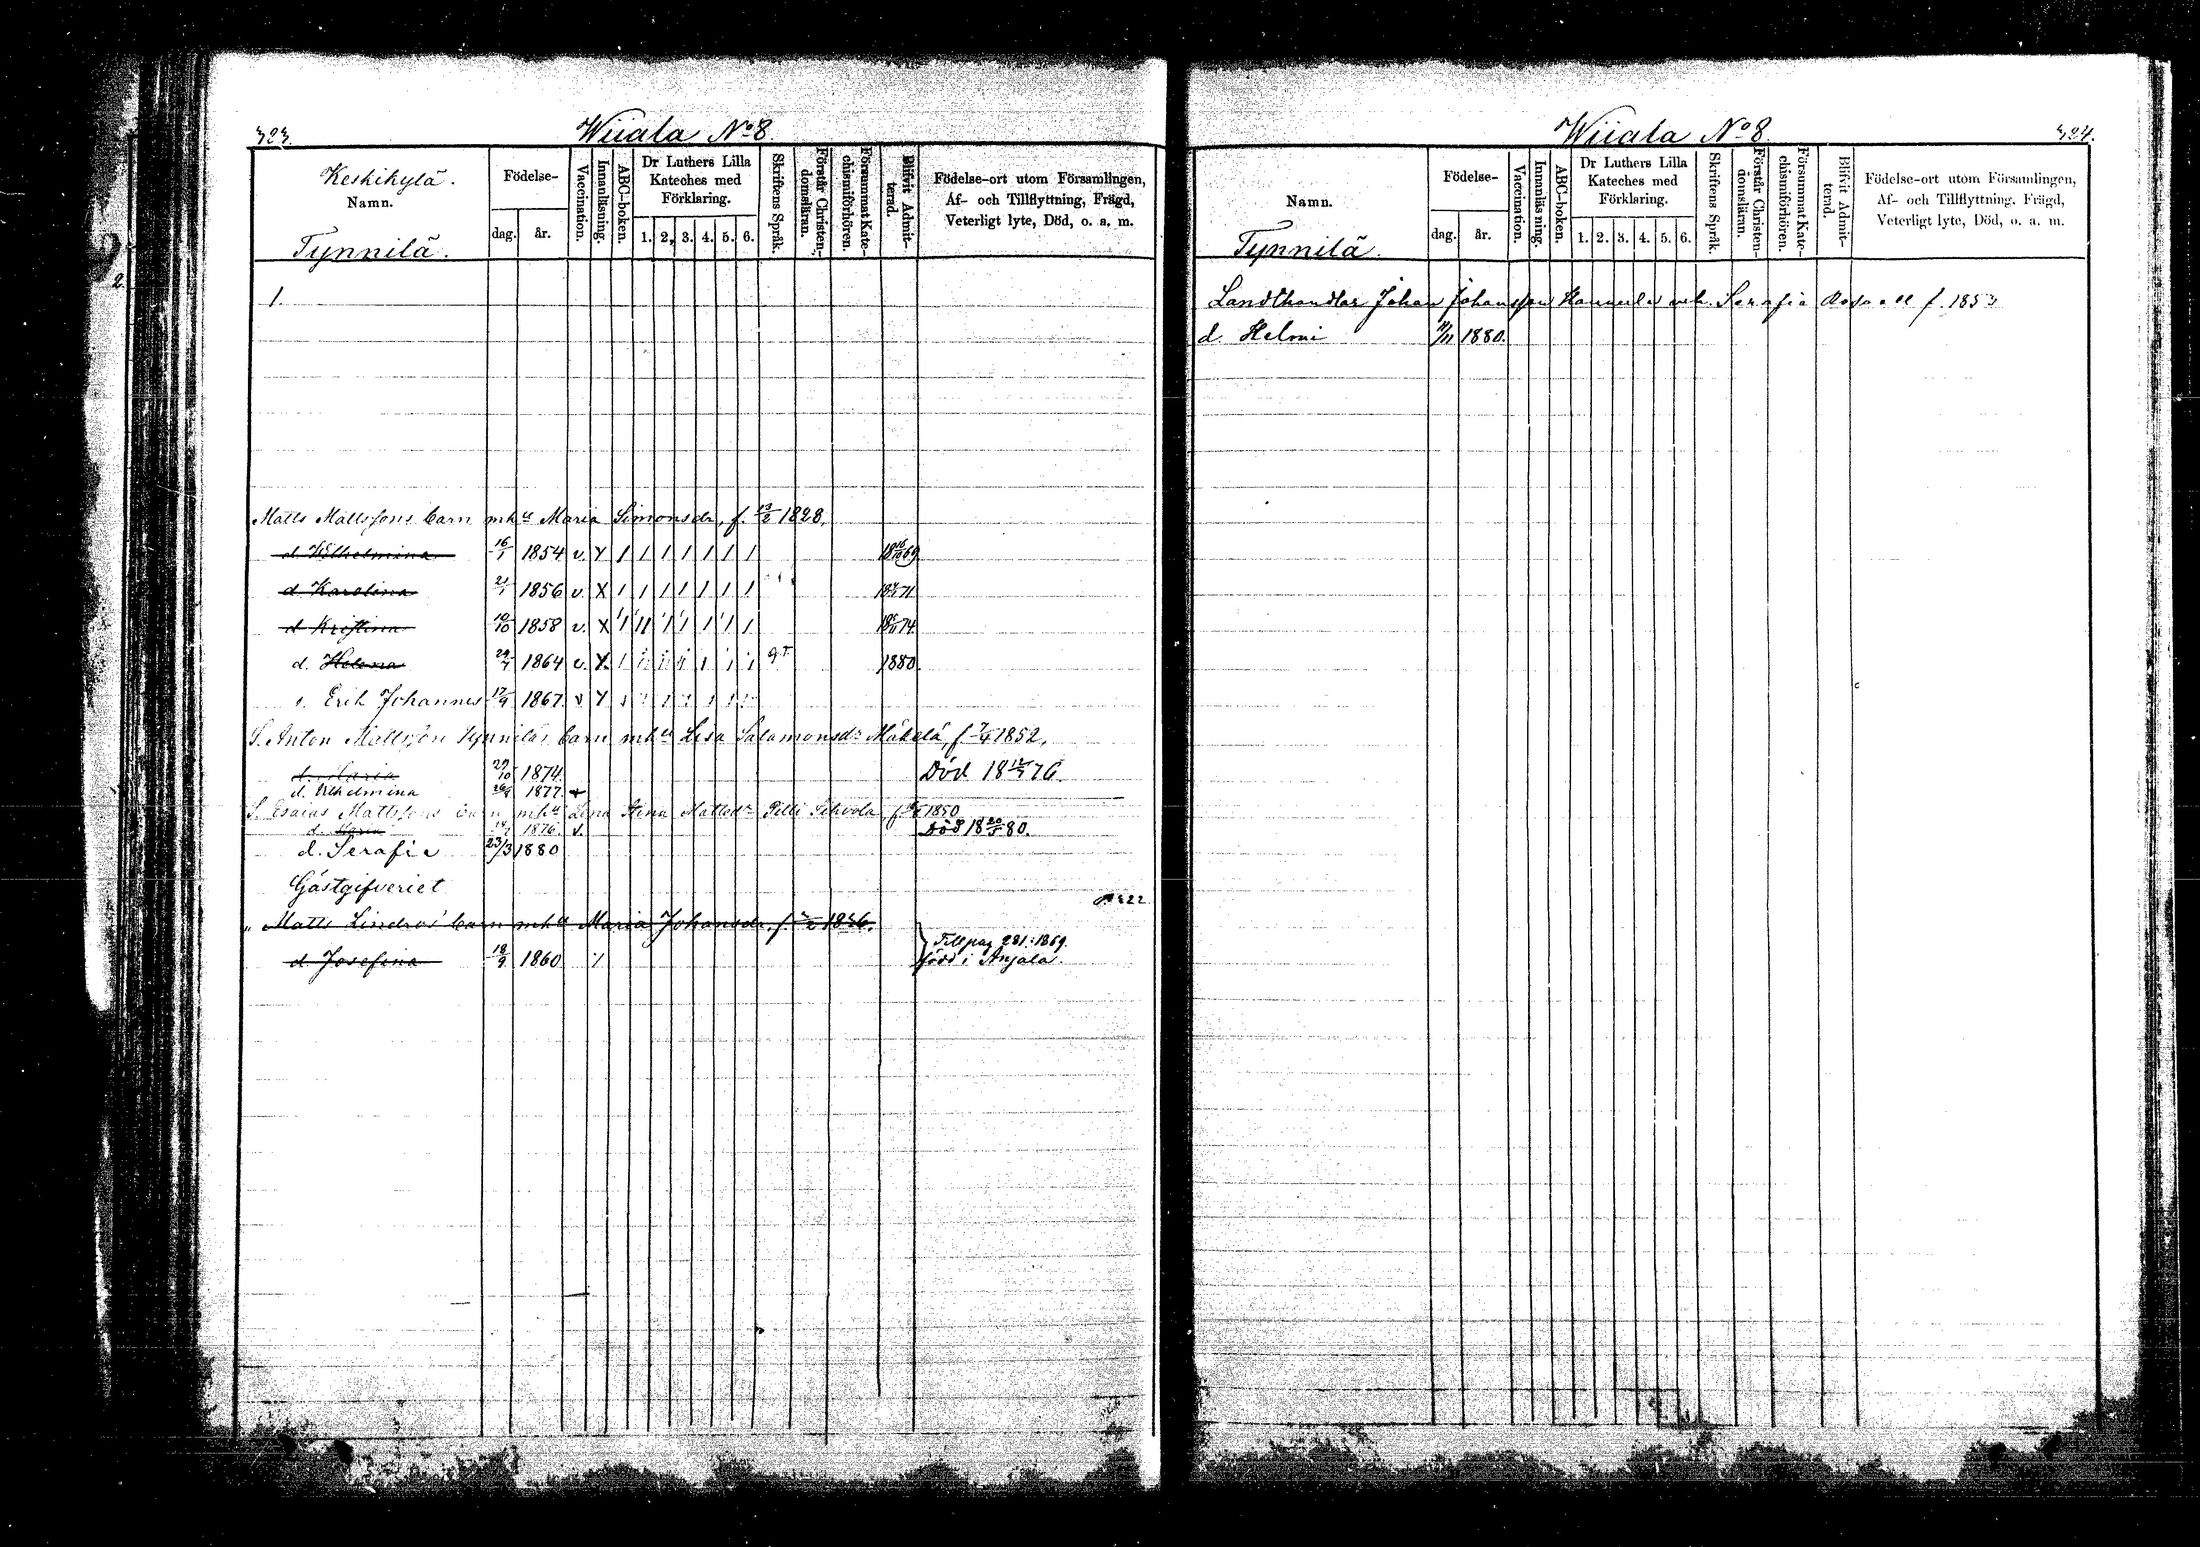 323.
Wiiala No 8.
Keskikylä.
Namn.
Tynnilä.
Födelse-
dag. år.
Vaccination.
Innanläsning.
ABC-boken.
Dr Luthers Lilla
Kateches med
Förklaring.
1. 2. 3. 4. 5. 6.
Skriftens Språk.
Förstår Christen-
domsläran.
Försummat Kate-
chismiförhören.
Blifvit Admit-
terad.
Födelse-ort utom Församlingen,
Af- och Tillflyttning, Frägd,
Veterligt lyte, Död, o. a. m.
2.
1.
Matts Mattssons barn mhu Maria Simonsdr, f. 13/2 1828.
d. Wilhelmina 16/1 1854 v. Y 1 1 1 1 1 1 1
d. Karolina 21/1 1856 v. X 1 1 1 1 1 1 1
d. Kristina 10/10 1858 v. X
d. Helena 29/7 1864 v. X 1880.
s. Erik Johannes 17/9 1867. v Y
S. Anton Mattsson Tynniläs barn mhu Lisa Salamonsdr Mäkelä, f. 7/4 1852.
d. Maria 29/10 1874. Död 18 76.
d. Vilhelmina 1877.
S. Esaias Mattssons barn mhu Lena Stina Mattsdr Pilli Sihvola, f. 1850
d. Maria 1876. v. Död 18 20/5 80.
d. Serafia 23/3 1880
Gästgifveriet
p. 322
Matts Lindros' barn mhu Maria Johansdr, f.
d. Josefina 18/9 1860
Till pag 281. 1869.
född i Anjala.
Wiiala No 8.
324.
Namn.
Tynnilä.
Födelse-
dag. år.
Vaccination.
Innanläsning.
ABC-boken.
Dr Luthers Lilla
Kateches med
Förklaring.
1. 2. 3. 4. 5. 6.
Skriftens Språk.
Förstår Christen-
domsläran.
Försummat Kate-
chismiförhören.
Blifvit Admit-
terad.
Födelse-ort utom Församlingen,
Af- och Tillflyttning. Frägd,
Veterligt lyte, Död, o. a. m.
Landthandlar Johan Johansson Serafia f. 1853
d. Helmi 1880.